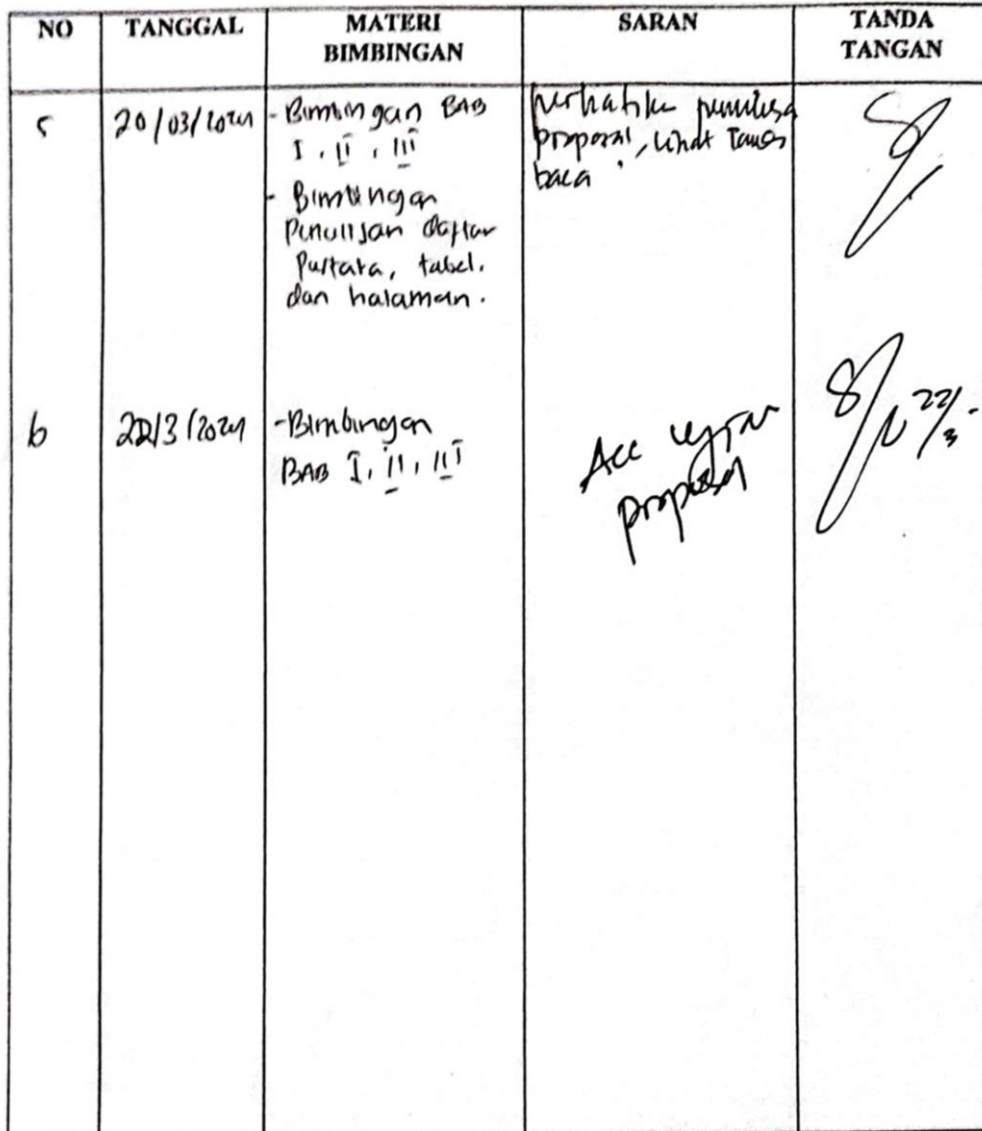 NO TANGGAL MATERI BIMBINGAN SARAN TANDA TANGAN
5 20/03/2024
- Bimbingan BAB
I, II, III
- Bimbingan
Penulisan daftar
Pustaka, tabel,
dan halaman.
perhatikan penulisan
proposal, lihat
baca
6 22/3/2024
- Bimbingan
BAB I, II, III
Acc ujian
proposal
22/3